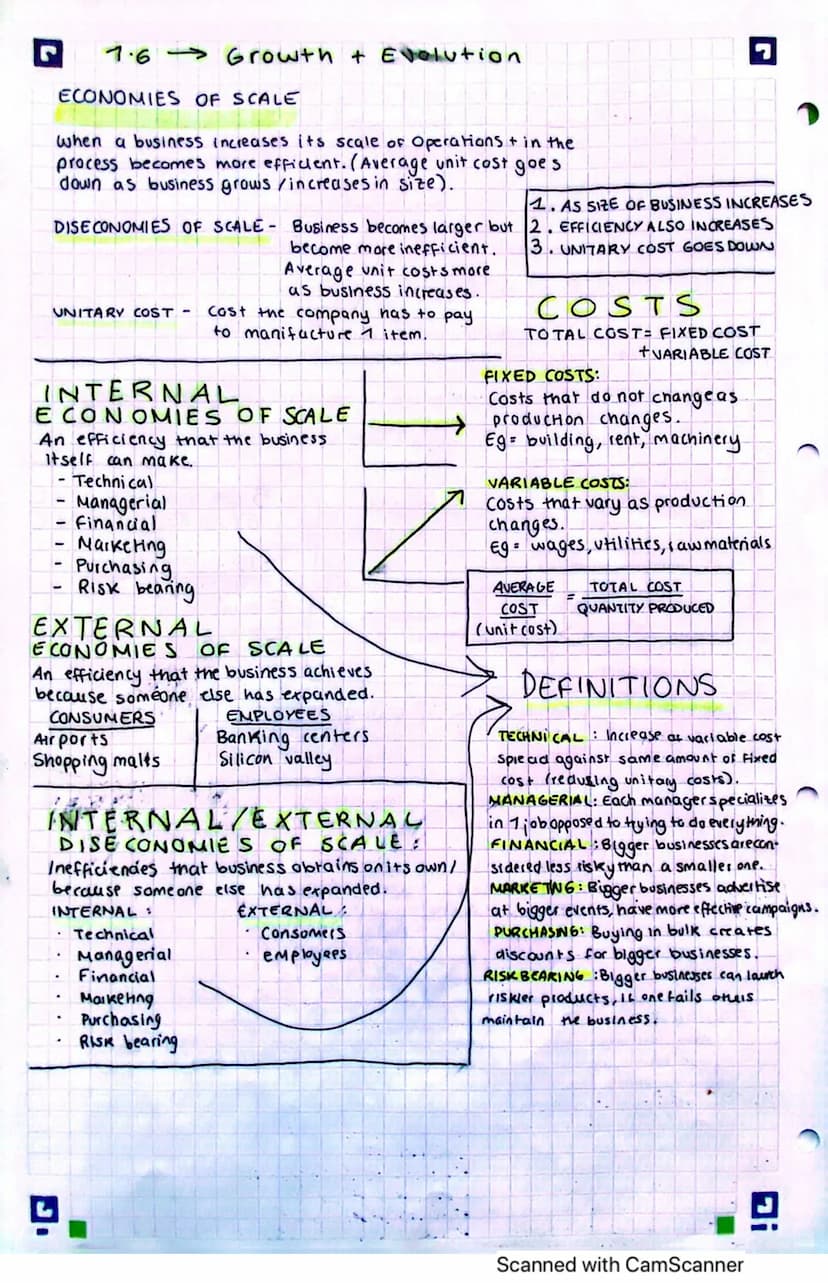 1.6 → Growth + Evolution
ECONOMIES OF SCALE
When a business increases its scale of operations + in the
process becomes more efficient. (Average unit cost goes
down as business grows / increases in size).
DISECONOMIES OF SCALE - Business becomes larger but
become more inefficient.
Average unit costs more
as business increases.
UNITARY COST - Cost the company has to pay
to manifacture 1 item.
1. AS SIZE OF BUSINESS INCREASES
2. EFFICIENCY ALSO INCREASES
3. UNITARY COST GOES DOWN
COSTS
TOTAL COST = FIXED COST
+ VARIABLE COST
FIXED COSTS:
Costs that do not change as
production changes.
Eg = building, rent, machinery
VARIABLE COSTS:
Costs that vary as production
changes.
Eg = wages, utilities, raw materials
AVERAGE COST (unit cost) = TOTAL COST / QUANTITY PRODUCED
INTERNAL
ECONOMIES OF SCALE
An efficiency that the business
itself can make.
- Technical
- Managerial
- Financial
- Marketing
- Purchasing
- Risk bearing
EXTERNAL
ECONOMIES OF SCALE
An efficiency that the business achieves
because someone else has expanded.
CONSUMERS
Airports
Shopping malls
EMPLOYEES
Banking centers
Silicon valley
INTERNAL/EXTERNAL
DISECONOMIES OF SCALE:
Inefficiencies that business obtains on its own/
because someone else has expanded.
INTERNAL:
· Technical
· Managerial
· Financial
· Marketing
· Purchasing
· Risk bearing
EXTERNAL:
· Consomers
· employees
DEFINITIONS
TECHNICAL: Increase at variable cost
spread against same amount of fixed
cost (redusing unitary costs).
MANAGERIAL: Each manager specializes
in 1 job opposed to trying to do everything.
FINANCIAL: Bigger businesses are con-
sidered less risky than a smaller one.
MARKETING: Bigger businesses advertise
at bigger events, have more effective campaigns.
PURCHASING: Buying in bulk creates
discounts for bigger businesses.
RISK BEARING: Bigger businesses can launch
riskier products, if one fails others
maintain the business.
Scanned with CamScanner